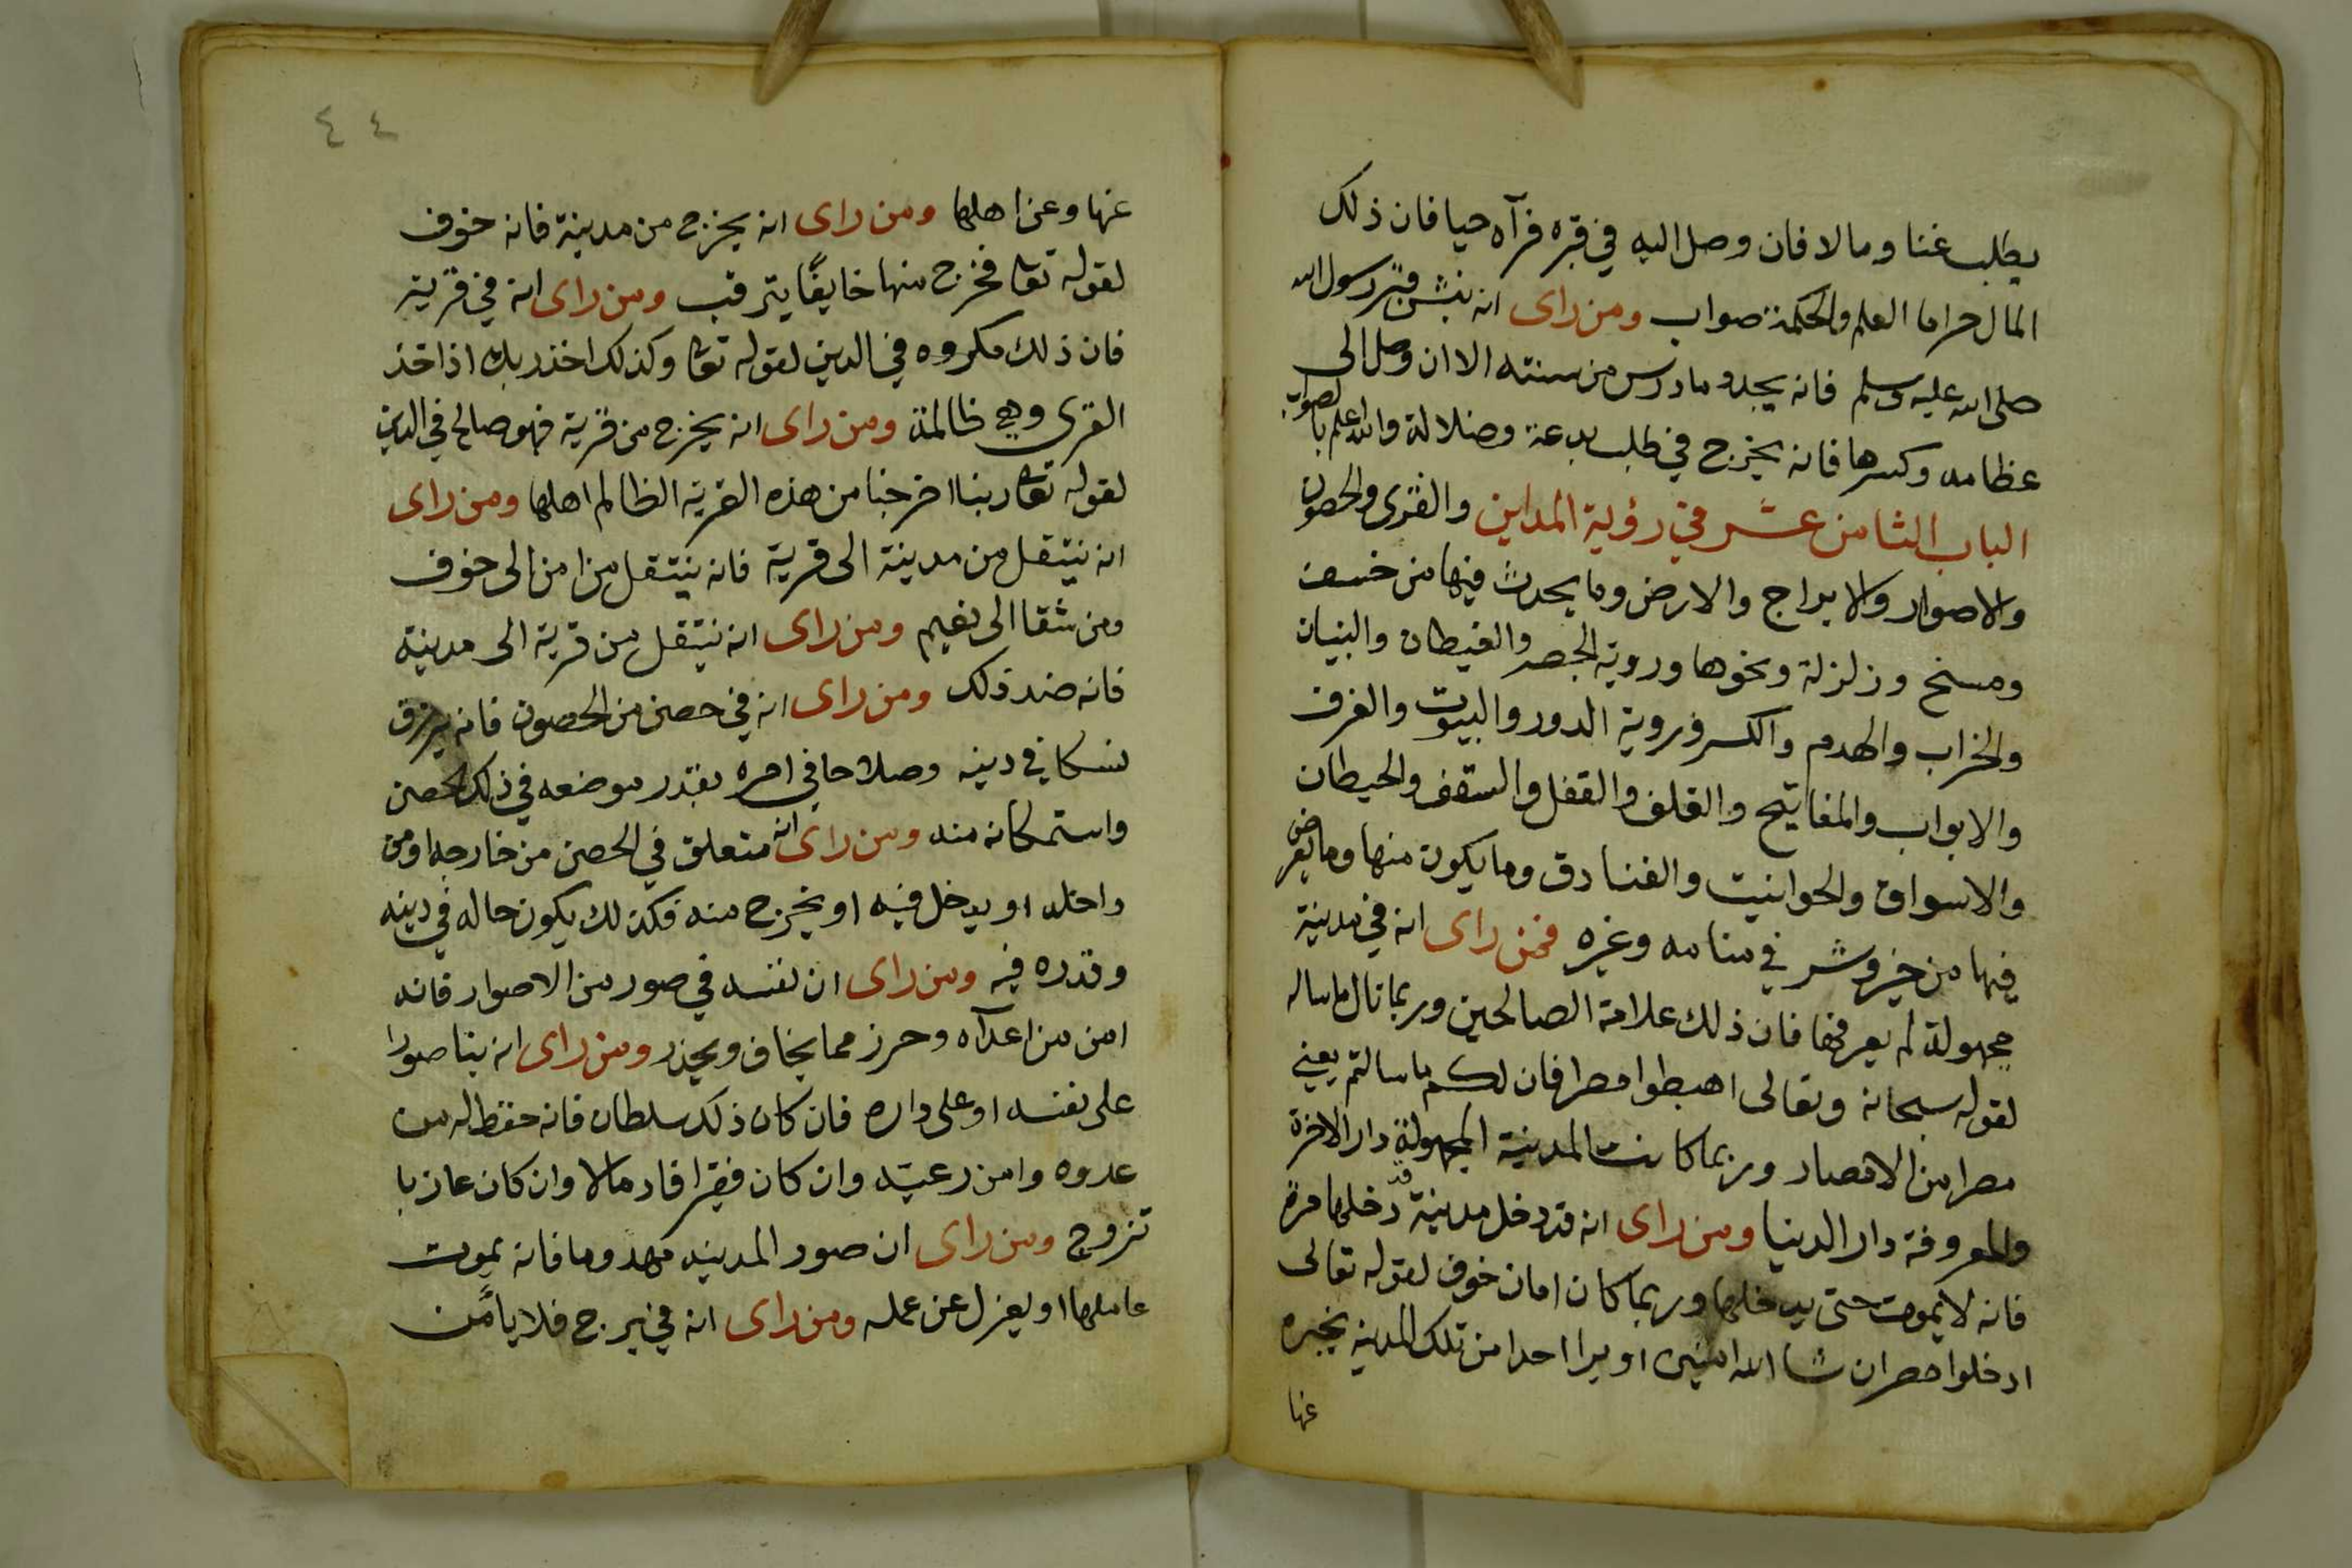 يطلب غنا ومالا فان وصل اليه في قبره فرآه حيا فان ذلك
المال حراما العلم والحكمة صواب ومن راى انه ينبش قبر رسول الله
صلى الله عليه وسلم فانه يجدد ما درس من سنته الا ان وصل الى
عظامه وكسرها فانه يخرج في طلب بدعة وضلالة والله اعلم بالصواب
الباب الثامن عشر في رؤية المداين والقرى والحصون
والاصوار والابراج والارض وما يحدث فيها من خسف
ومسخ وزلزلة ونحوها وروية الجصر والغيطان والبنيان
والخراب والهدم والكسر وروية الدور والبيوت والغرف
والابواب والمفاتيح والقلف والقفل والسقف والحيطان
والاسواق والحوانيت والفنادق وما يكون منها وما يعرض
فيها من خير وشر في منامه وغيره فمن راى انه في مدينة
مجهولة لم يعرفها فان ذلك علامة الصالحين وربما نال ما ساله
لقوله سبحانه وتعالى اهبطوا مصرا فان لكم ما سالتم يعني
مصرا من الامصار وربما كانت المدينة المجهولة دار الاخرة
والمعروفة دار الدنيا ومن راى انه قد دخل مدينة قد دخلها مرة
فانه لا يموت حتى يدخلها وربما كان امان خوف لقوله تعالى
ادخلوا مصر ان شا الله امنين او يرا احدا من تلك المدينه يخبره
عنها
٤٤
عنها وعن اهلها ومن راى انه يخرج من مدينة فانه خوف
لقوله تعا فخرج منها خايفًا يترقب ومن راى انه في قرية
فان ذلك مكروه في الدين لقوله تعا وكذلك اخذ ربك اذا اخذ
القرى وهي ظالمة ومن راى انه يخرج من قرية فهو صالح في الدين
لقوله تعا ربنا اخرجنا من هذه القرية الظالم اهلها ومن راى
انه ينتقل من مدينة الى قرية فانه ينتقل من امن الى خوف
ومن شقا الى نعيم ومن راى انه ينتقل من قرية الى مدينة
فانه ضد ذلك ومن راى انه في حصن من الحصون فانه يرزق
نسكا في دينه وصلاحا في امره بقدر موضعه في ذلك الحصن
واستمكانه منه ومن راى انه متعلق في الحصن من خارجه او من
داخله او يدخل فيه او يخرج منه فكذلك يكون حاله في دينه
وقدره فيه ومن راى ان نفسه في صور من الاصوار فانه
امن من اعدآه وحرز مما يخاف ويحذر ومن راى انه بنا صورا
على نفسه او على داره فان كان ذلك سلطان فانه حفظ له من
عدوه وامن رعيته وان كان فقيرا فاد مالا وان كان عازبا
تزوج ومن راى ان صور المدينه مهدوما فانه يموت
عاملها او يعزل عن عمله ومن راى انه في برج فلا يأمن